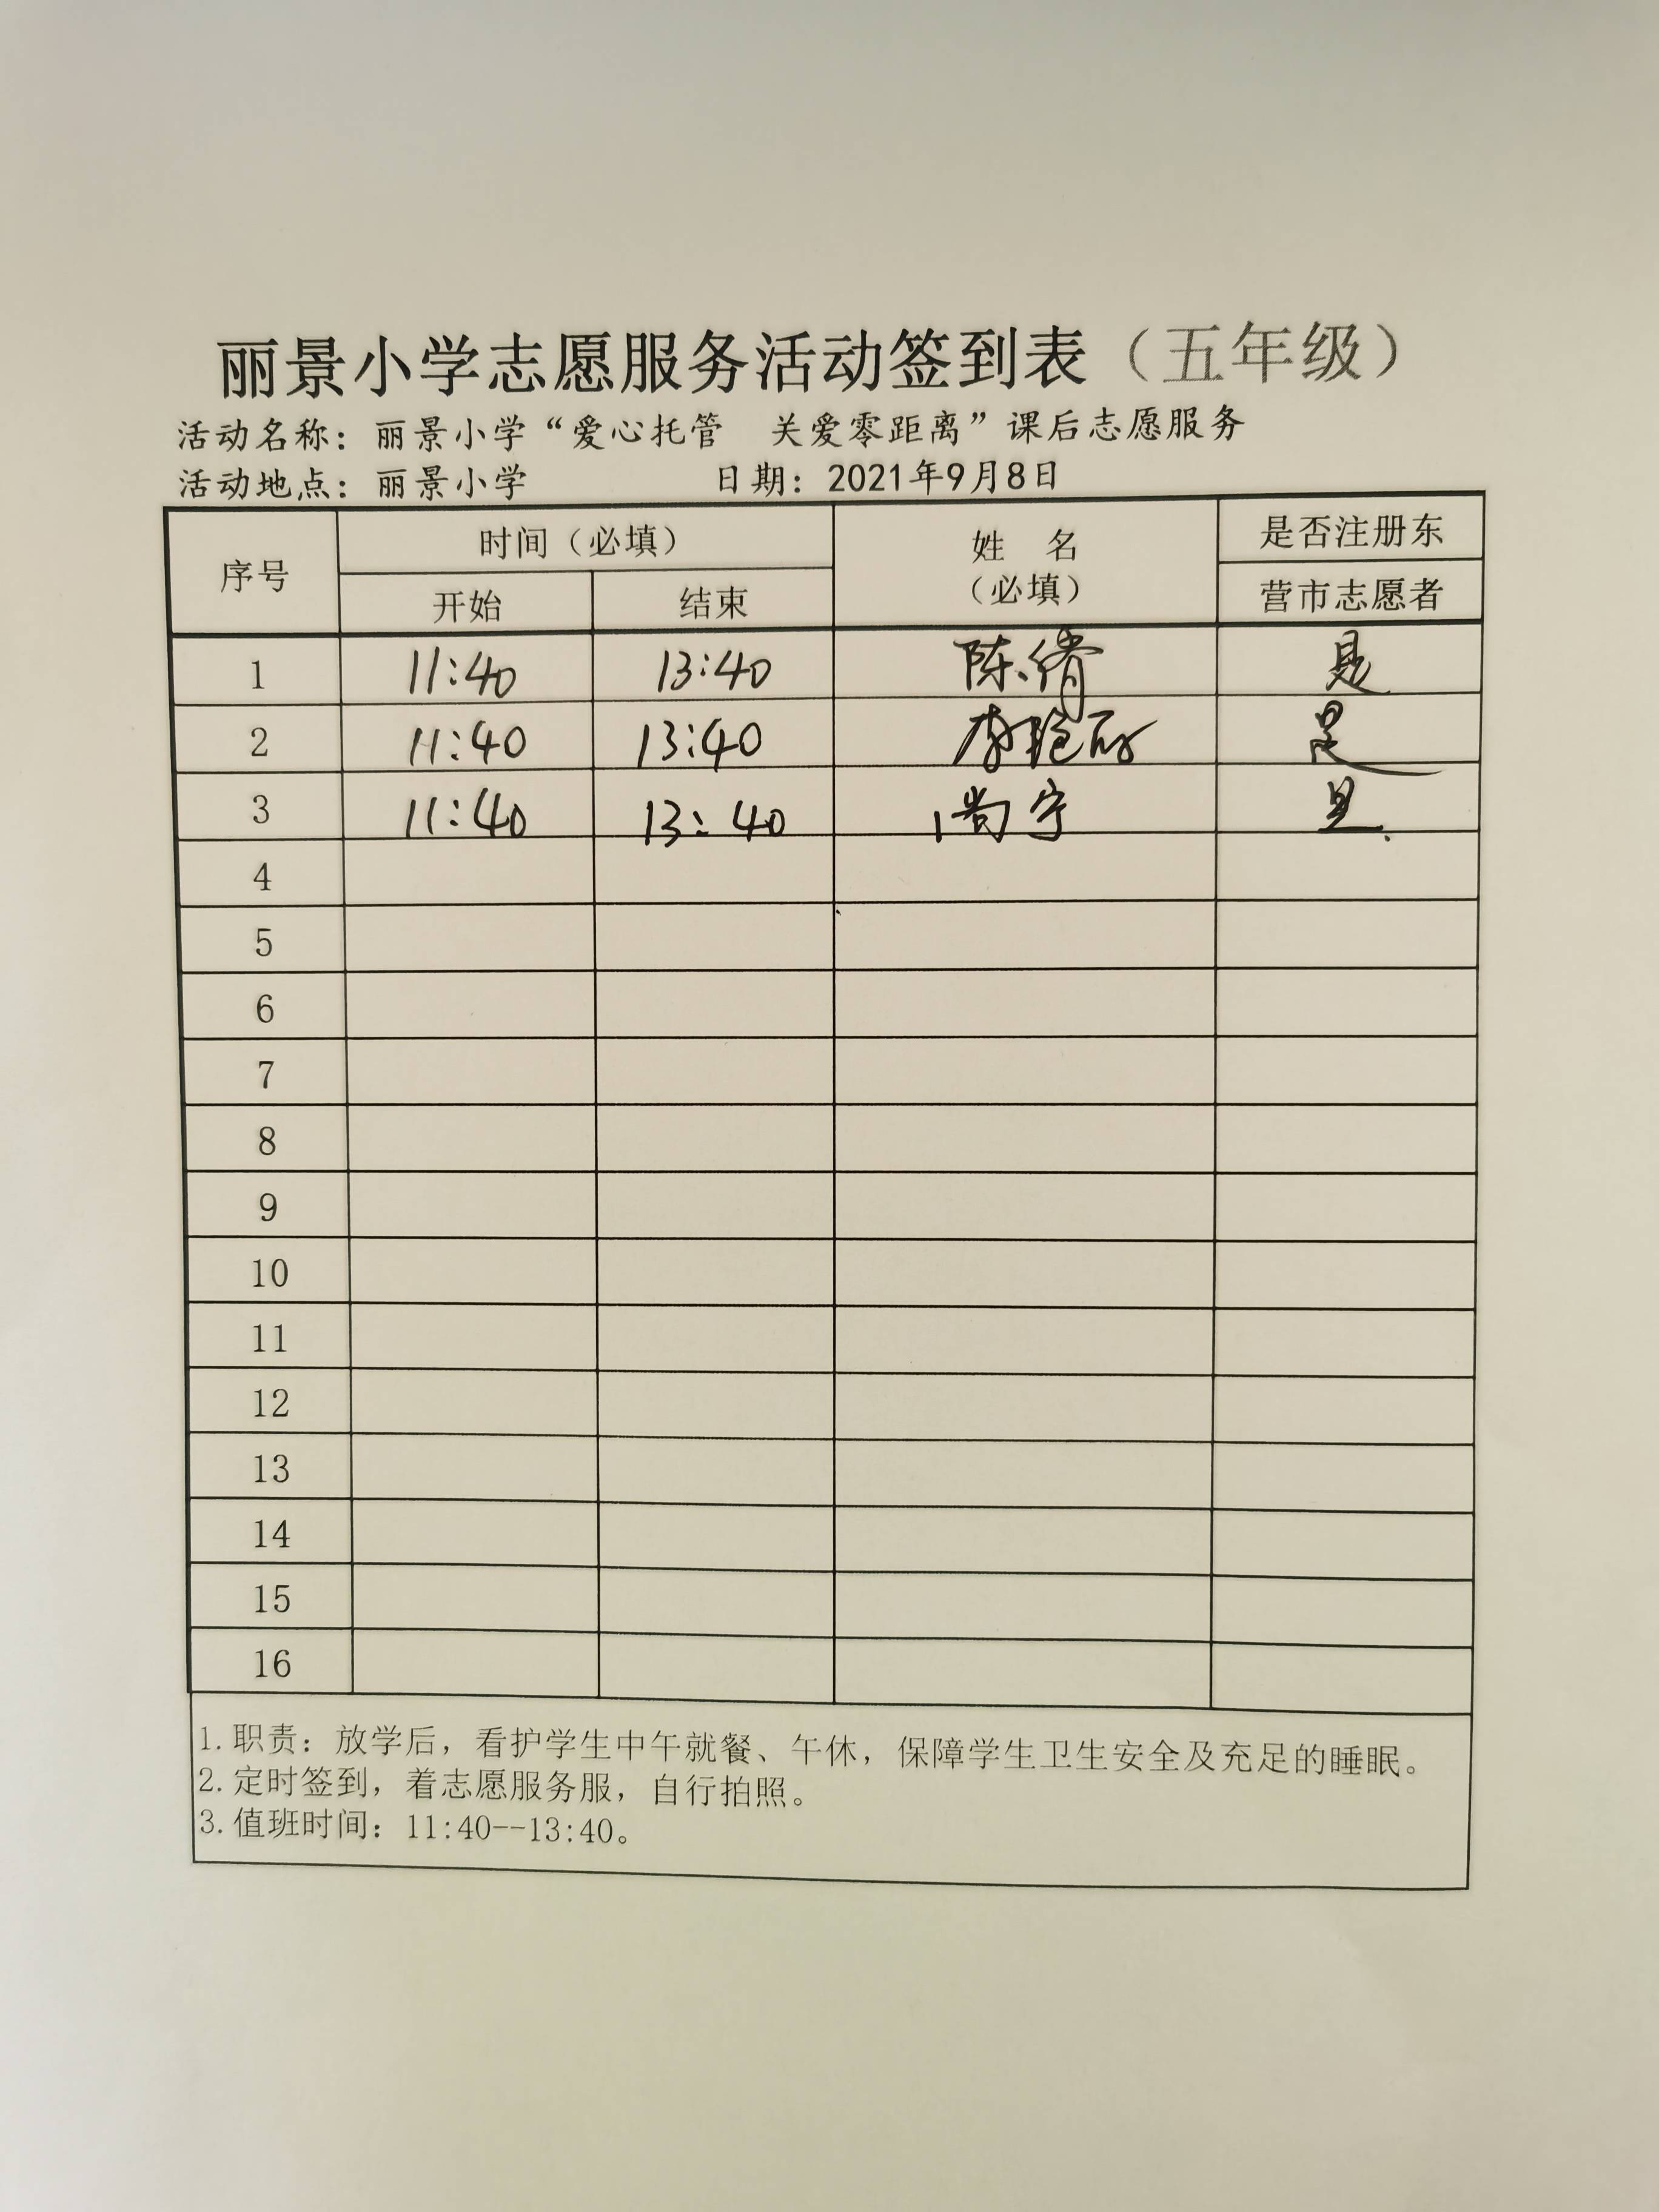 丽景小学志愿服务活动签到表（五年级）
活动名称：丽景小学“爱心托管 关爱零距离”课后志愿服务
活动地点：丽景小学 日期：2021年9月8日
序号 时间（必填） 姓 名（必填） 是否注册东营市志愿者
开始 结束
1 11:40 13:40 陈倩 是
2 11:40 13:40 李艳丽 是
3 11:40 13:40 尚宇 是
4
5
6
7
8
9
10
11
12
13
14
15
16
1.职责：放学后，看护学生中午就餐、午休，保障学生卫生安全及充足的睡眠。
2.定时签到，着志愿服务服，自行拍照。
3.值班时间：11:40--13:40。